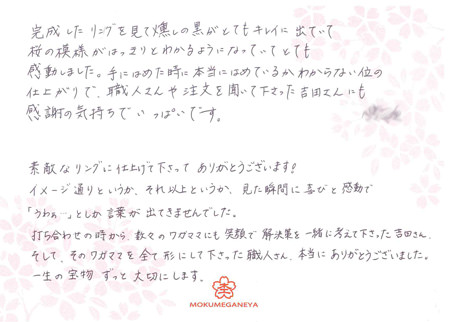 完成したリングを見て燻しの黒がとてもキレイに出ていて
桜の模様がはっきりとわかるようになっていてとても
感動しました。手にはめた時に本当にはめているかわからない位の
仕上がりで、職人さんや注文を聞いて下さった吉田さんにも
感謝の気持ちでいっぱいです。
素敵なリングに仕上げて下さってありがとうございます!
イメージ通りというか、それ以上というか、見た瞬間に喜びと感動で
「うわぁ…」としか言葉が出てきませんでした。
打ち合わせの時から、数々のワガママにも笑顔で解決策を一緒に考えて下さった吉田さん、
そして、そのワガママを全て形にして下さった職人さん、本当にありがとうございました。
一生の宝物ずっと大切にします。
MOKUMEGANEYA